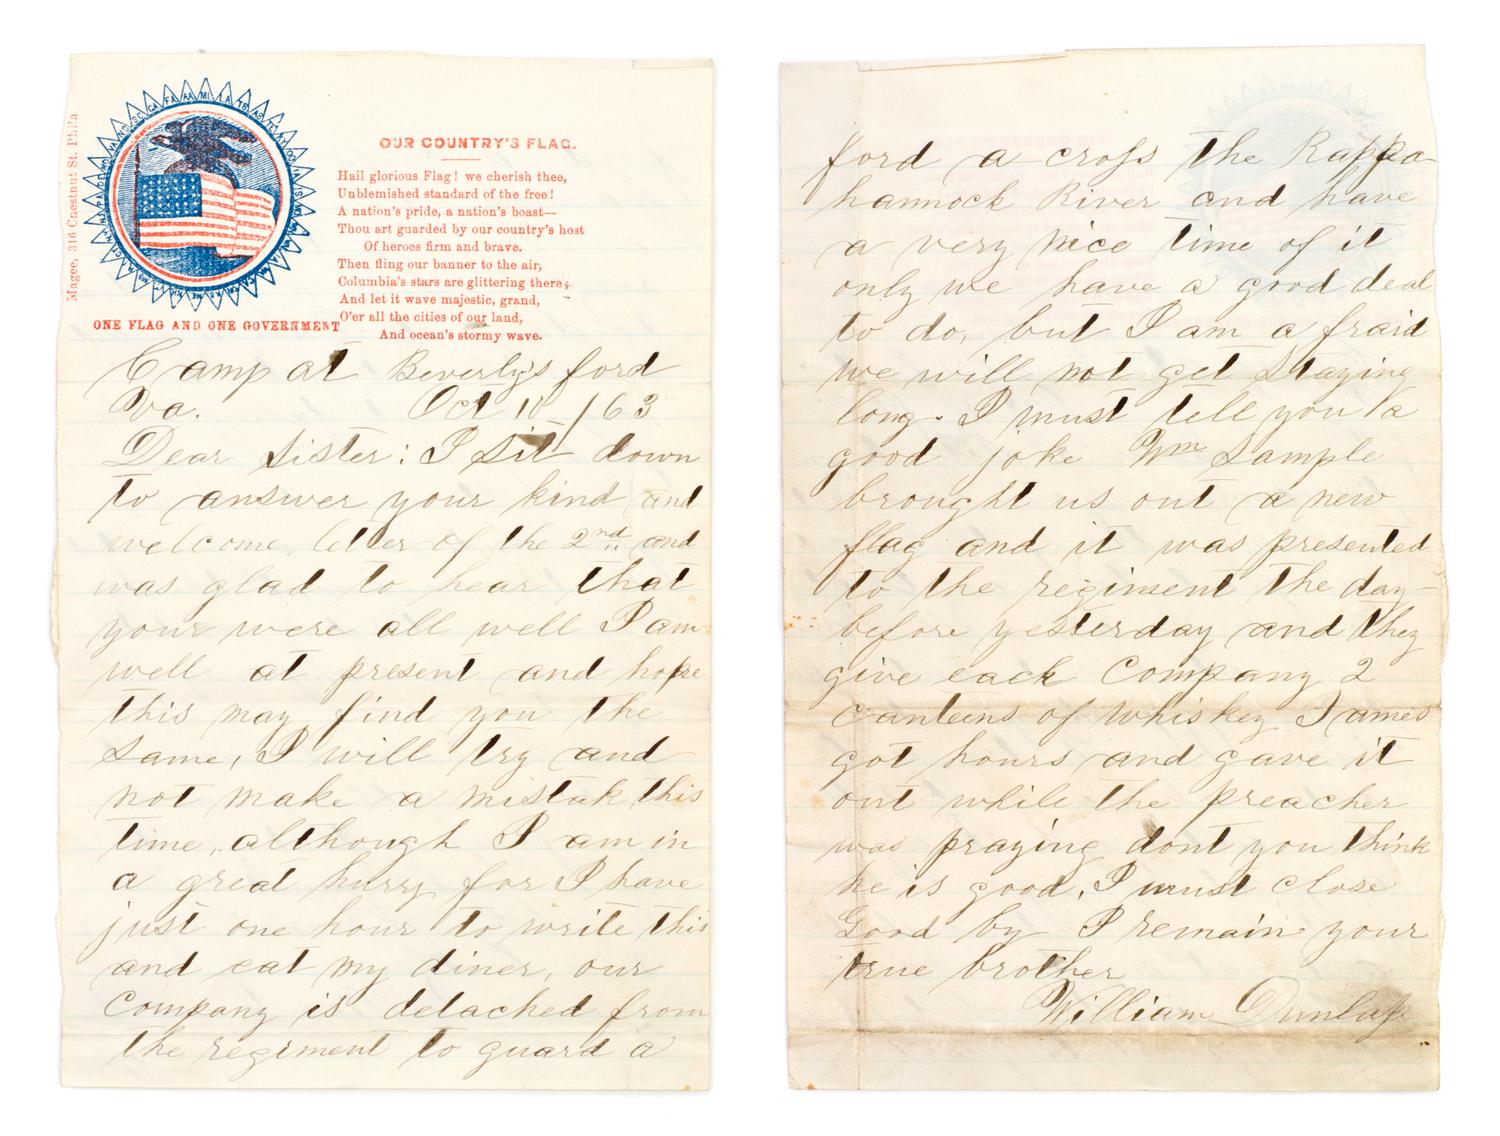 Magee, 316 Chestnut St. Phila
OUR COUNTRY'S FLAG.
Hail glorious Flag! we cherish thee,
Unblemished standard of the free!
A nation's pride, a nation's boast—
Thou art guarded by our country's host
Of heroes firm and brave.
Then fling our banner to the air,
Columbia's stars are glittering there;
And let it wave majestic, grand,
O'er all the cities of our land,
And ocean's stormy wave.
ONE FLAG AND ONE GOVERNMENT
Camp at Beverly's ford
Va. Oct 10 /63
Dear Sister: I sit down
to answer your kind and
welcome letter of the 2nd and
was glad to hear that
your were all well I am
well at present and hope
this may find you the
same, I will try and
not make a mistak this
time, although I am in
a great hurry for I have
just one hour to write this
and eat my diner, our
Company is detached from
the regiment to guard a
ford a cross the Rappa-
hannock River and have
a very nice time of it
only we have a good deal
to do, but I am a fraid
we will not get Staying
long. I must tell you a
good joke Wm Sample
brought us out a new
flag and it was presented
to the regiment the day-
before yesterday and they
give each Company 2
canteens of whiskey James
got hours and gave it
out while the preacher
was praying dont you think
he is good, I must close
Good by I remain your
true brother
William Dunlap